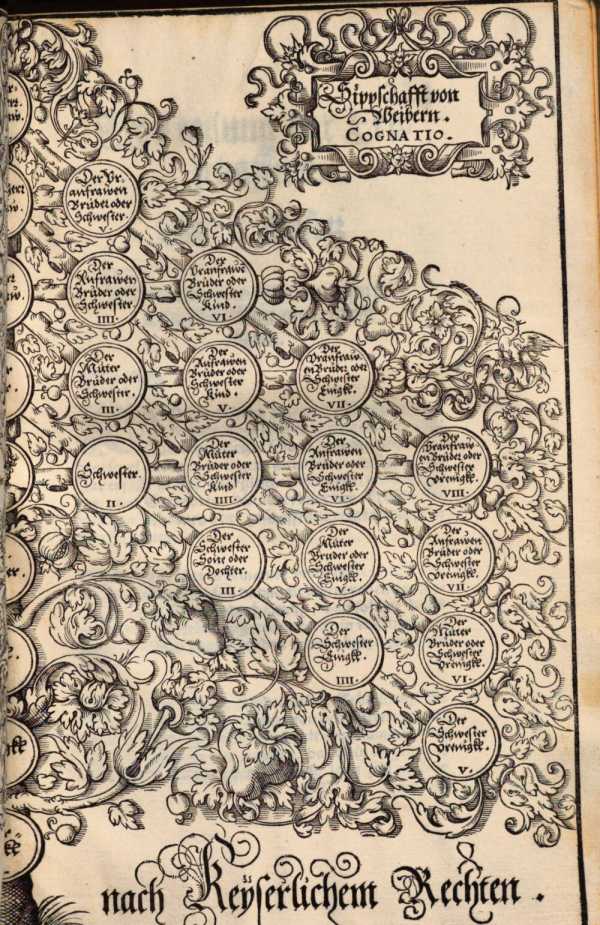 Sippschafft von
Weibern.
COGNATIO.
Der Vr
anfrawen
Brüder oder
Schwester.
V.
Der
Anfrawen
Brüder oder
Schwester
IIII.
Der
Vranfrawē
Brüder oder
Schwester
Kind.
VI.
Der
Müter
Brüder oder
Schwester.
III.
Der
Anfrawen
Brüder oder
Schwester
Kind.
V.
Der
Vranfraw
en Brüder oder
Schwester
Enigkl.
VII.
Schwester.
II.
Der
Müter
Brüder oder
Schwester
Kind
IIII.
Der
Anfrawen
Brüder oder
Schwester
Enigkl.
VI.
Der
Vranfraw
en Brüder oder
Schwester
Vrenigkl.
VIII.
Der
Schwester
Sone oder
Dochter.
III
Der
Müter
Bruder oder
Schwester
Enigkl.
V.
Der
Anfrawen
Brüder oder
Schwester
Vrenigkl.
VII
Der
Schwester
Enigkl.
IIII.
Der
Müter
Brüder oder
Schwester
Vrenigkl.
VI.
Der
Schwester
Vrenigkl.
V.
nach Keyserlichem Rechten.